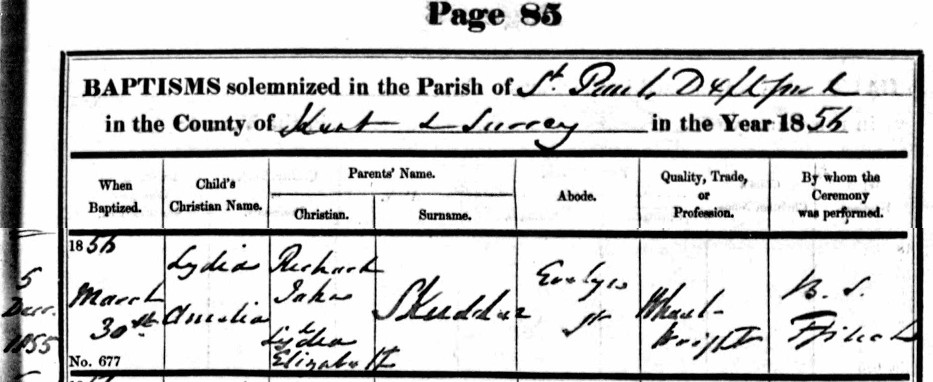 Page 85
BAPTISMS solemnized in the Parish of St. Paul, Deptford
in the County of Kent & Surrey in the Year 1856
When Baptized.
Child's Christian Name.
Parents' Name.
Christian.
Surname.
Abode.
Quality, Trade, or Profession.
By whom the Ceremony was performed.
5
Decr.
1855
1856
March
30th
No. 677
Lydia
Amelia
Richard
John
Lydia
Elizabeth
Skudder
Evelyn
St
Wheel-
wright
B. S.
Ffinch